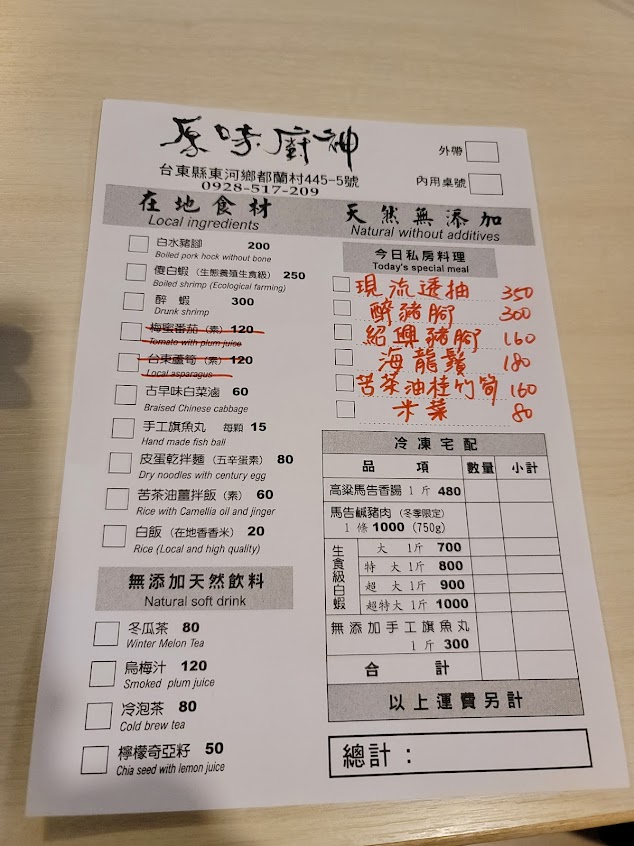 原味廚神
台東縣東河鄉都蘭村445-5號
0928-517-209
外帶
內用桌號
在地食材
Local ingredients
白水豬腳 200
Boiled pork hock without bone
傻白蝦 (生態養殖生食級) 250
Boiled shrimp (Ecological farming)
醉 蝦 300
Drunk shrimp
梅蜜番茄 (素) 120
Tomato with plum juice
台東蘆筍 (素) 120
Local asparagus
古早味白菜滷 60
Braised Chinese cabbage
手工旗魚丸 每顆 15
Hand made fish ball
皮蛋乾拌麵 (五辛蛋素) 80
Dry noodles with century egg
苦茶油薑拌飯 (素) 60
Rice with Camellia oil and jinger
白飯 (在地香香米) 20
Rice (Local and high quality)
無添加天然飲料
Natural soft drink
冬瓜茶 80
Winter Melon Tea
烏梅汁 120
Smoked plum juice
冷泡茶 80
Cold brew tea
檸檬奇亞籽 50
Chia seed with lemon juice
天然無添加
Natural without additives
今日私房料理
Today's special meal
現流透抽 350
醉豬腳 300
紹興豬腳 160
海龍鬚 180
苦茶油桂竹筍 160
米菜 80
冷凍宅配
品 項 數量 小計
高粱馬告香腸 1 斤 480
馬告鹹豬肉 (冬季限定)
1 條 1000 (750g)
生食級白蝦
大 1斤 700
特 大 1斤 800
超 大 1斤 900
超特大 1斤 1000
無添加手工旗魚丸
1 斤 300
合 計
以上運費另計
總計：